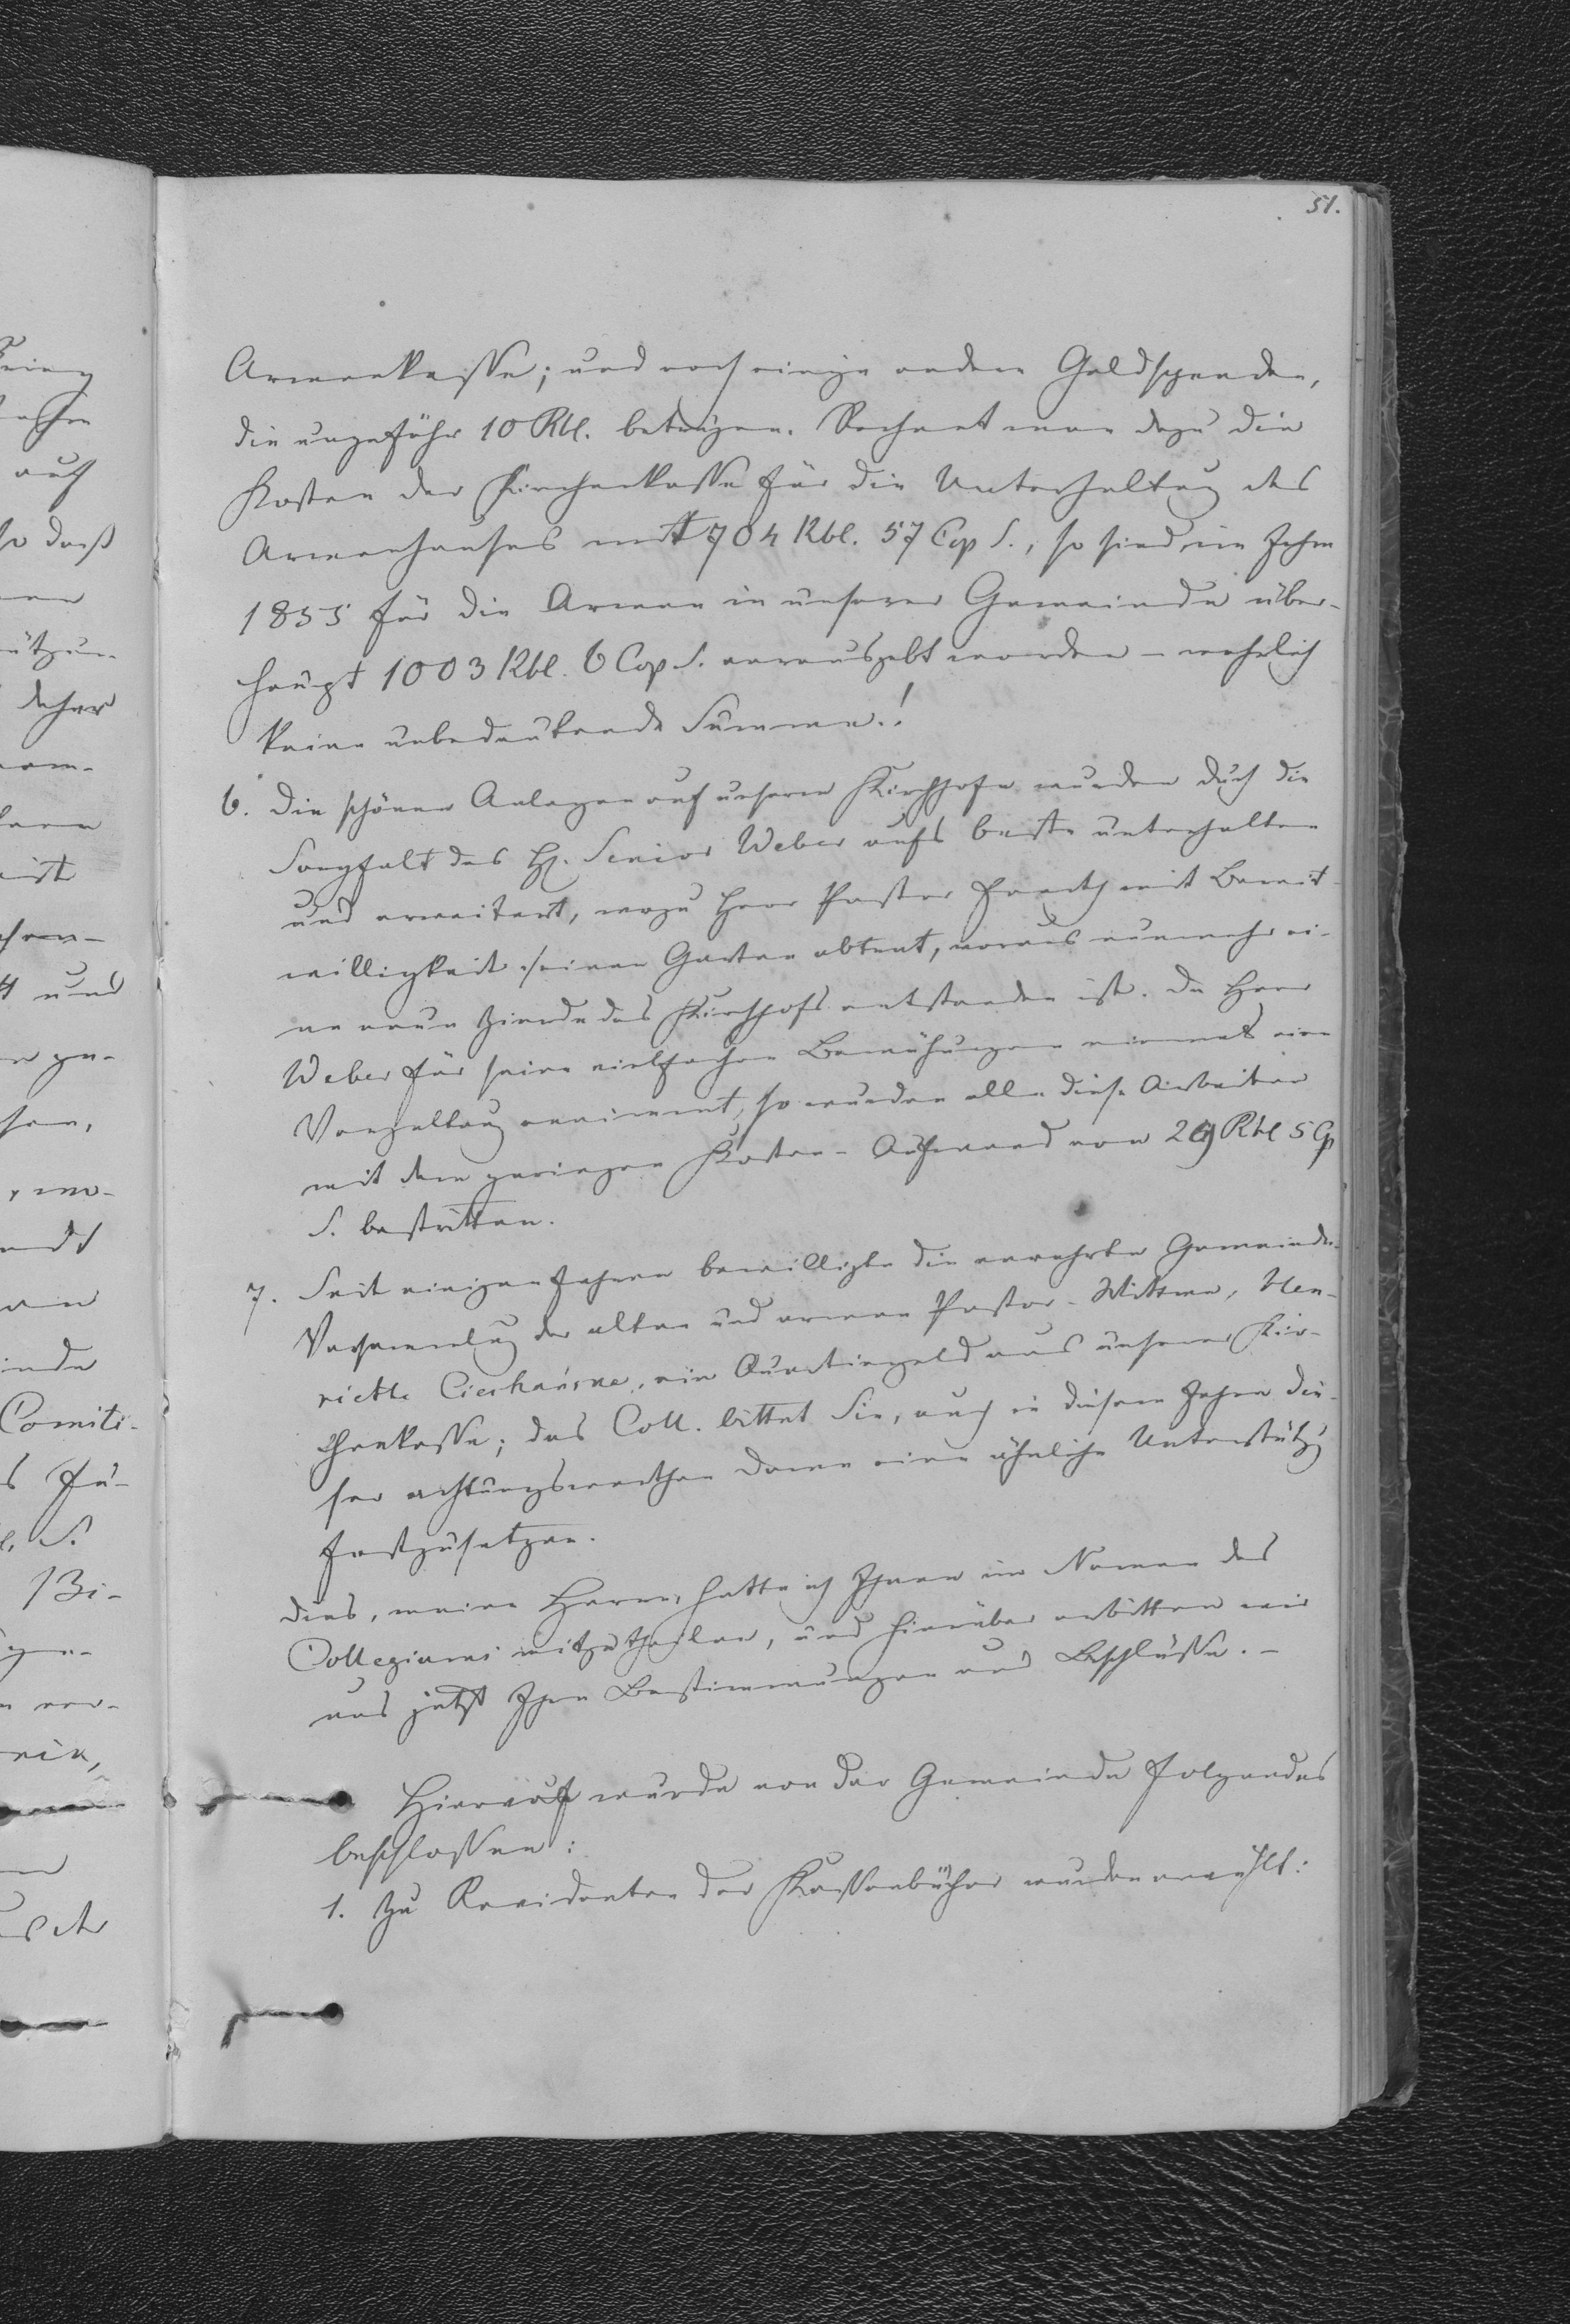 51.
Armenkasse; und noch einige andere Geldspenden,
die ungefähr 10 Rbl. betrugen. Rechnet man dazu die
Kosten der Kirchenkasse für die Unterhaltung des
Armenhauses mit 704 Rbl. 57 Cop S., so sind im Jahre
1855 für die Armen in unserer Gemeinde über-
haupt 1003 Rbl. 6 Cop S. verausgabt worden – wahrlich
keine unbedeutende Summe.!
6. Die schönen Anlagen auf unserm Kirchhofe wurden durch die
Sorgfalt des H. Senior Weber aufs beste unterhalten
und erweitert, wozu Herr Pastor mit Bereit-
willigkeit seinen Garten abtrat, woraus nunmehr ei-
ne neue Zierde des Kirchhofs entstanden ist. Da Herr
Weber für seine vielfachen Bemühungen niemals eine
Vergeltung annimmt, so wurden alle diese Arbeiten
mit dem geringen Kosten-Aufwand von Rbl 5 Cp
S. bestritten.
7. Seit einigen Jahren bewilligte die verehrte Gemeinde-
Versammlung der alten und armen Pastor-Wittwe, Hen-
riette Cienhańsna, ein Quartiergeld aus unserer Kir-
chenkasse; das Coll. bittet Sie, auch in diesem Jahre die-
ser achtungswerthen Dame eine ähnliche Unterstützg
festzusetzen.
Dies, meine Herrn, hatte ich Ihnen im Namen des
Collegiums mitzutheilen, und hierüber erbitten wir
uns jetzt Ihre Bestimmungen und Beschlüsse. –
Hierauf wurde von der Gemeinde Folgendes
beschlossen:
1. Zu Revidenten der Kassenbücher wurden erwählt:
auch
so daß
nützun-
daher
und
Comité-
S.
Bi-